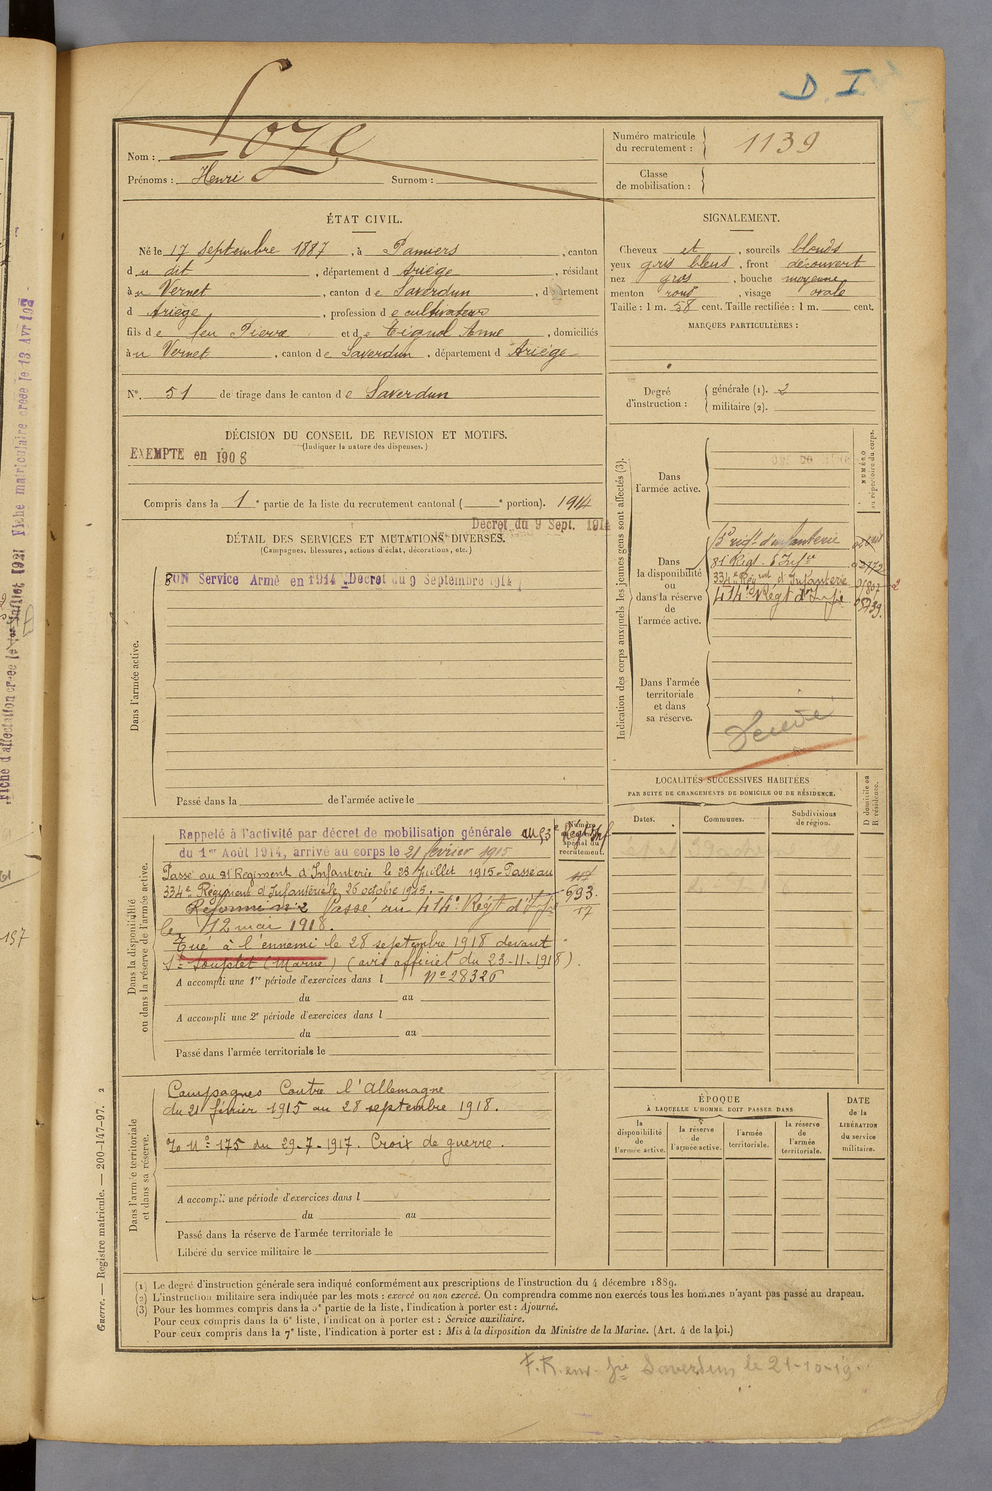 D. I
Nom : Loze
Prénoms : Henri Surnom :
Numéro matricule
du recrutement : 1139
Classe
de mobilisation :
ÉTAT CIVIL.
Né le 17 septembre 1887, à Pamiers, canton
du dit, département d Ariège, résidant
à u Vernet, canton de Saverdun, département
d Ariège, profession de cultivateur
fils de feu Pierre et de Tignol Anne, domiciliés
à u Vernet, canton de Saverdun, département d Ariège
N°. 51 de tirage dans le canton de Saverdun
SIGNALEMENT.
Cheveux et, sourcils blonds
yeux gris bleus, front découvert
nez gros, bouche moyenne
menton rond, visage ovale
Taille : 1 m. 58 cent. Taille rectifiée : 1 m. cent.
MARQUES PARTICULIÈRES :
Degré
d'instruction :
générale (1). 2
militaire (2).
DÉCISION DU CONSEIL DE REVISION ET MOTIFS.
(Indiquer la nature des dispenses.)
EXEMPTE en 1908
Compris dans la 1e partie de la liste du recrutement cantonal ( e portion). 1914
Décret du 9 Sept. 1914
DÉTAIL DES SERVICES ET MUTATIONS DIVERSES.
(Campagnes, blessures, actions d'éclat, décorations, etc.)
Dans l'armée active.
BON Service Armé en 1914 Décret du 9 Septembre 1914
Passé dans la de l'armée active le
Indication des corps auxquels les jeunes gens sont affectés (3).
NUMÉRO
au répertoire du corps.
Dans
l'armée active.
Dans
la disponibilité
ou
dans la réserve
de
l'armée active.
regt d'infanterie
81e Regt d'Infie
334e Régiment d'Infanterie
414e Regt d'Infie
Dans l'armée
territoriale
et dans
sa réserve.
LOCALITÉS SUCCESSIVES HABITÉES
PAR SUITE DE CHANGEMENTS DE DOMICILE OU DE RÉSIDENCE.
Dates. Communes. Subdivisions
de région.
D domicile ou
R résidence.
Dans la disponibilité
ou dans la réserve de l'armée active.
Rappelé à l'activité par décret de mobilisation générale au 53e Regt Inf
du 1er Août 1914, arrivé au corps le 21 février 1915
Passé au 81 Régiment d'Infanterie le 28 Juillet 1915. Passé au
334e Régiment d'Infanterie le 26 octobre 1915.
Réformé n° 2 Passé au 414e Régt d'Infie
le 12 mai 1918.
Tué à l'ennemi le 28 septembre 1918 devant
St Souplet (Marne) (avis officiel du 23-11-1918).
N° 28326
593
17
A accompli une 1re période d'exercices dans l
du au
A accompli une 2e période d'exercices dans l
du au
Passé dans l'armée territoriale le
Dans l'armée territoriale
et dans sa réserve.
Campagnes Contre l'Allemagne
du 21 février 1915 au 28 septembre 1918.
n° 175 du 29-7-1917. Croix de guerre.
A accompli une période d'exercices dans l
du au
Passé dans la réserve de l'armée territoriale le
Libéré du service militaire le
ÉPOQUE
À LAQUELLE L'HOMME DOIT PASSER DANS
la
disponibilité
de
l'armée active.
la réserve
de
l'armée active.
l'armée
territoriale.
la réserve
de
l'armée
territoriale.
DATE
de la
LIBÉRATION
du service
militaire.
(1) Le degré d'instruction générale sera indiqué conformément aux prescriptions de l'instruction du 4 décembre 1889.
(2) L'instruction militaire sera indiquée par les mots : exercé ou non exercé. On comprendra comme non exercés tous les hommes n'ayant pas passé au drapeau.
(3) Pour les hommes compris dans la 5e partie de la liste, l'indication à porter est : Ajourné.
Pour ceux compris dans la 6e liste, l'indication à porter est : Service auxiliaire.
Pour ceux compris dans la 7e liste, l'indication à porter est : Mis à la disposition du Ministre de la Marine. (Art. 4 de la loi.)
Guerre. — Registre matricule. — 200-147-97. 2
F.R. env. Saverdun le 21-10-19.
Fiche matriculaire créée le 13 Avr 192
Fiche d'affectation créée le
157